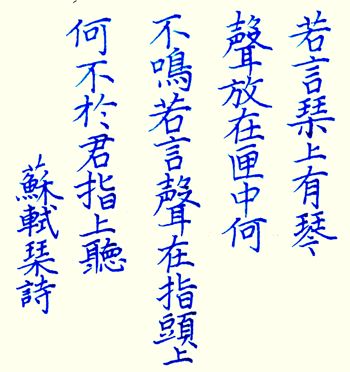 若言琹上有琴
聲放在匣中何
不鳴若言聲在指頭上
何不於君指上聽
蘇軾琹詩